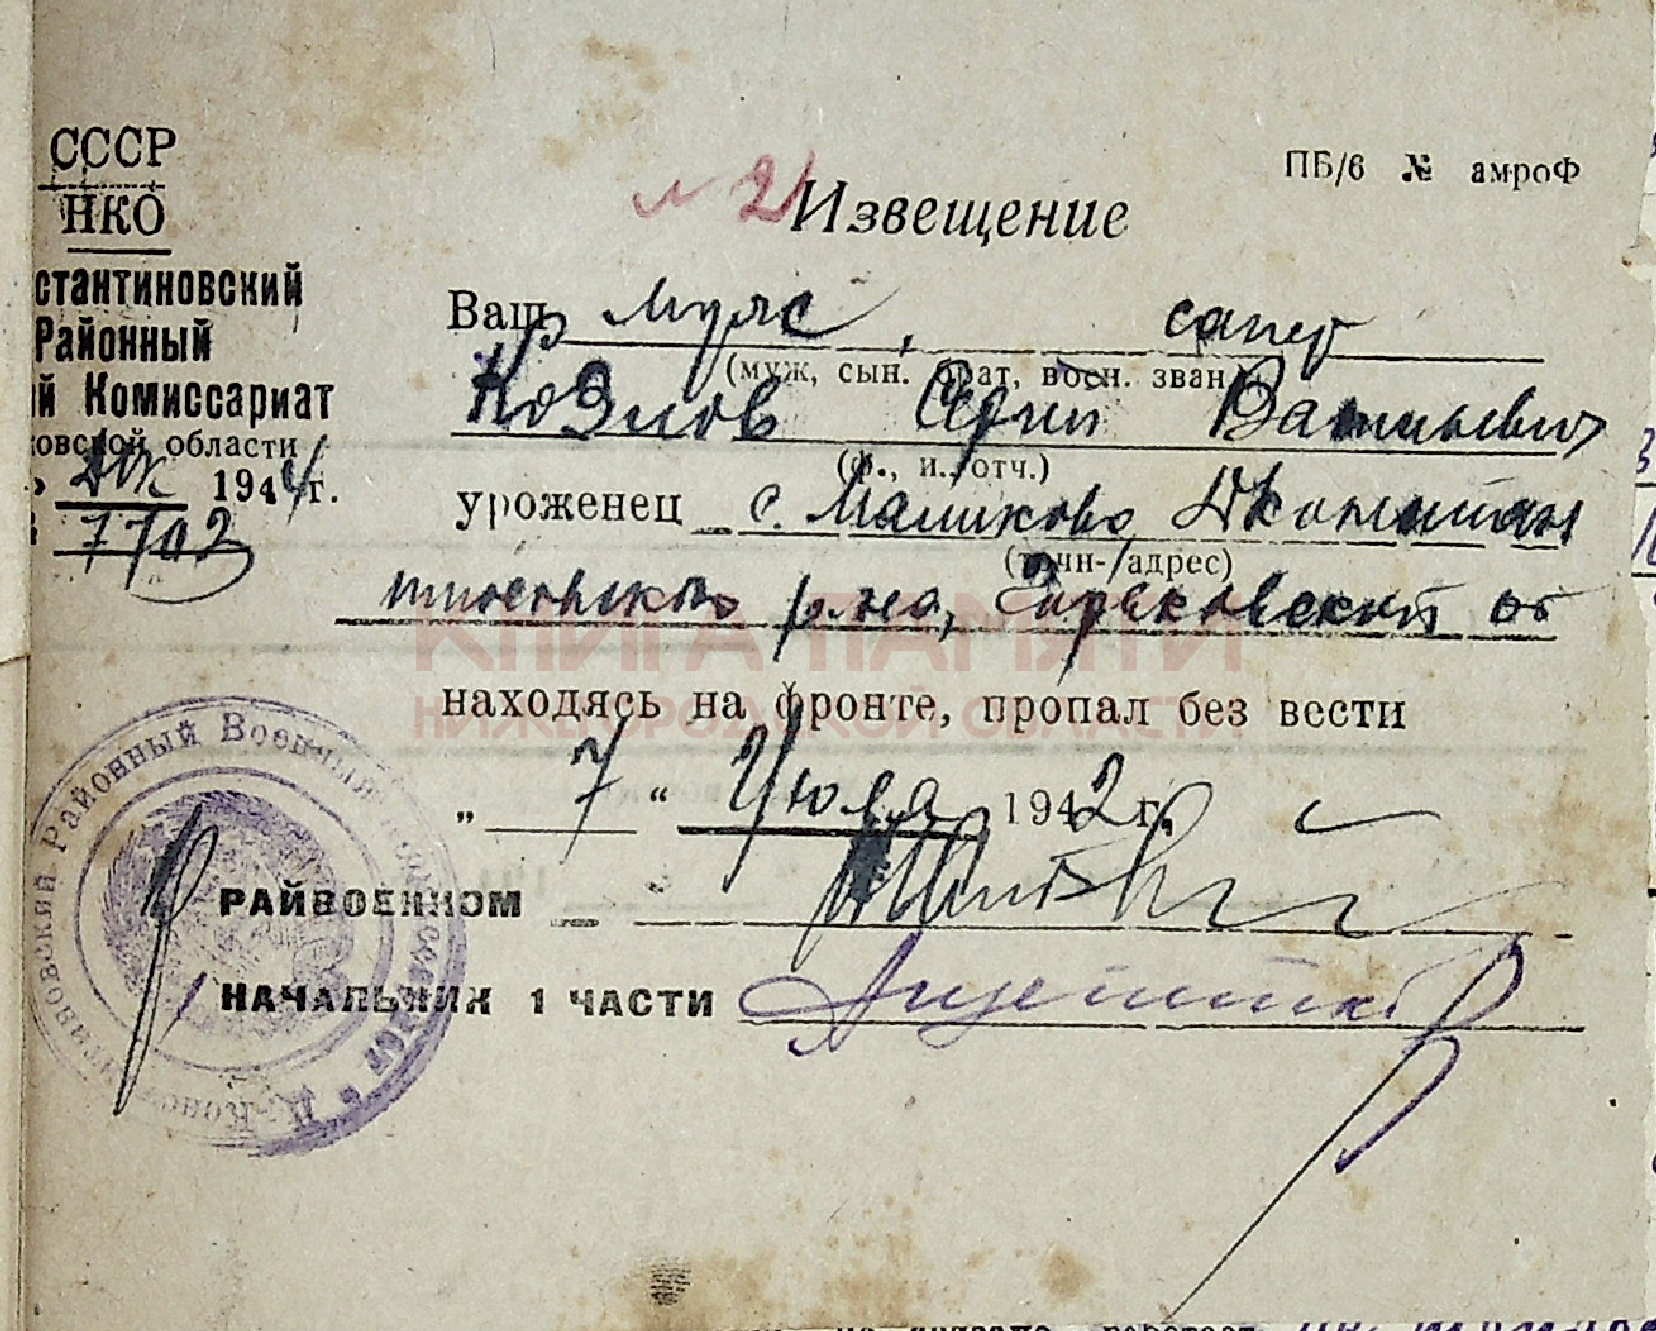 СССР
НКО
стантиновский
Районный
й Комиссариат
ковской области
» Дек 1944 г.
7702
ПБ/6 № амроФ
№ 21
Извещение
Ваш муж, сапер
(муж, сын. брат, воен. зван.)
Козлов Сергей Васильевич
(ф., и., отч.)
уроженец с. Маликово Дконстан
(точн. адрес)
тиновского р-на, Горьковской об
находясь на фронте, пропал без вести
„ 7 “ Июля 1942 г.
РАЙВОЕНКОМ
НАЧАЛЬНИК 1 ЧАСТИ
КНИГА ПАМЯТИ
НИЖЕГОРОДСКОЙ ОБЛАСТИ